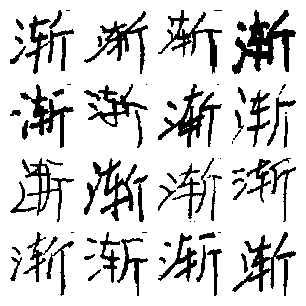 渐渐渐渐
渐渐渐渐
渐渐渐渐
渐渐渐渐